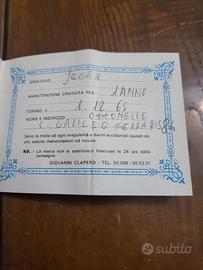 OROLOGIO JEGER
MANUTENZIONE GRATUITA PER 1 ANNO
TORINO, li 1.12.65
NOME E INDIRIZZO OTTONELLO
C. GALILEO FERRARIS
Salvo la molla ed ogni irregolarità o danni accidentali causati da
urti, cadute, manomissioni od incuria.
NB. - La merce non si sostituisce trascorse le 24 ore dalla
consegna.
GIOVANNI CLAPERO - TEL. 50.009 - 55.53.31
subito